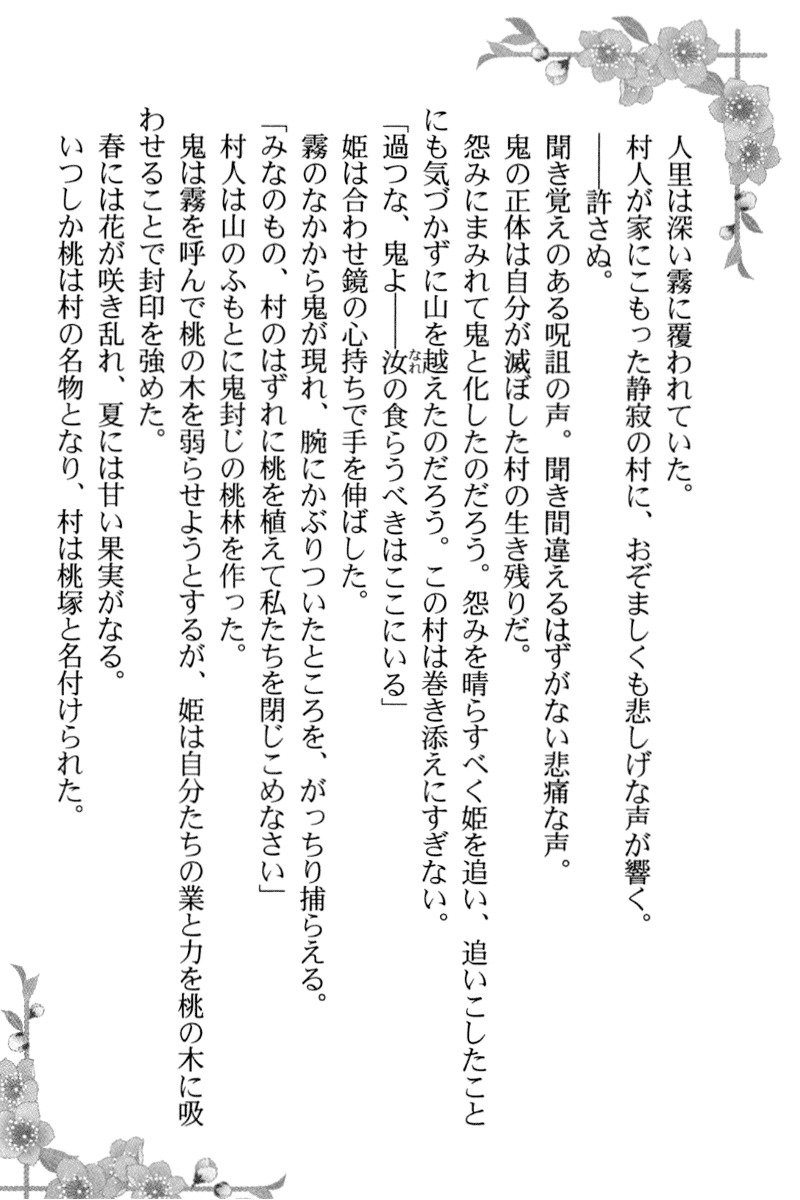 人里は深い霧に覆われていた。
村人が家にこもった静寂の村に、おぞましくも悲しげな声が響く。
――許さぬ。
聞き覚えのある呪詛の声。聞き間違えるはずがない悲痛な声。
鬼の正体は自分が滅ぼした村の生き残りだ。
怨みにまみれて鬼と化したのだろう。怨みを晴らすべく姫を追い、追いこしたこと
にも気づかずに山を越えたのだろう。この村は巻き添えにすぎない。
「過つな、鬼よ――汝なれの食らうべきはここにいる」
姫は合わせ鏡の心持ちで手を伸ばした。
霧のなかから鬼が現れ、腕にかぶりついたところを、がっちり捕らえる。
「みなのもの、村のはずれに桃を植えて私たちを閉じこめなさい」
村人は山のふもとに鬼封じの桃林を作った。
鬼は霧を呼んで桃の木を弱らせようとするが、姫は自分たちの業と力を桃の木に吸
わせることで封印を強めた。
春には花が咲き乱れ、夏には甘い果実がなる。
いつしか桃は村の名物となり、村は桃塚と名付けられた。